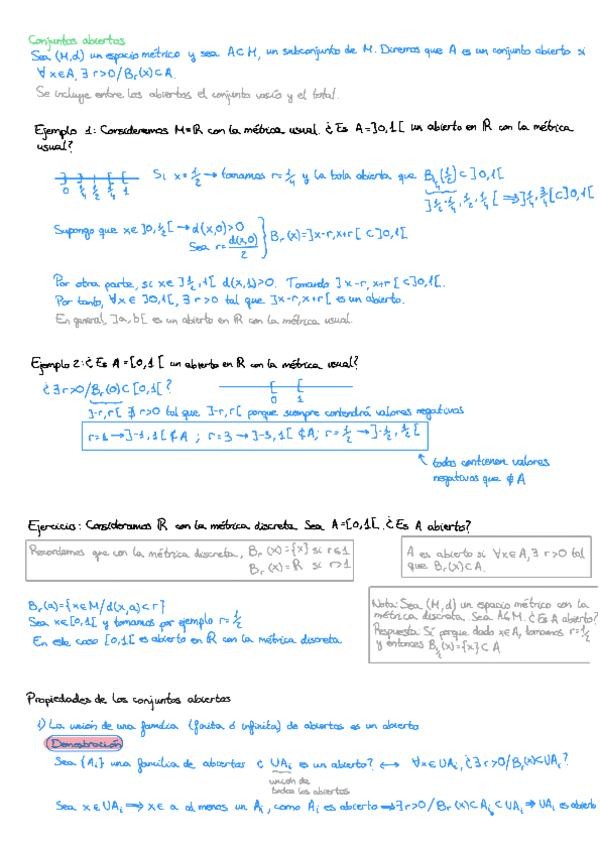 Conjuntos abiertos
Sea (M,d) un espacio métrico y sea A⊂M, un subconjunto de M. Diremos que A es un conjunto abierto si
∀x∈A, ∃ r>0/Bᵣ(x)⊂A.
Se incluye entre los abiertos el conjunto vacío y el total.
Ejemplo 1: Consideramos M=ℝ con la métrica usual. ¿Es A=]0,1[ un abierto en ℝ con la métrica
usual?
0 1/4 1/2 3/4 1
Si x=1/2 → tomamos r=1/4 y la bola abierta que B_{1/4}(1/2)⊂]0,1[
]1/2-1/4, 1/2+1/4[ ⟹ ]1/4, 3/4[⊂]0,1[
Supongo que x∈]0,1/2[ → d(x,0)>0
Sea r=d(x,0)/2 } Bᵣ(x)=]x-r,x+r[ ⊂]0,1[
Por otra parte, si x∈]1/2,1[ d(x,1)>0. Tomando ]x-r,x+r[⊂]0,1[.
Por tanto, ∀x∈]0,1[, ∃ r>0 tal que ]x-r,x+r[ es un abierto.
En general, ]a,b[ es un abierto en ℝ con la métrica usual.
Ejemplo 2: ¿Es A=[0,1[ un abierto en ℝ con la métrica usual?
¿∃r>0/Bᵣ(0)⊂[0,1[?
[ [
0 1
]-r,r[ ∄ r>0 tal que ]-r,r[ porque siempre contendrá valores negativos
r=1→]-1,1[⊄A ; r=3→]-3,3[⊄A; r=1/2→]-1/2,1/2[
todos contienen valores
negativos que ∉ A
Ejercicio: Consideramos ℝ con la métrica discreta. Sea A=[0,1[. ¿Es A abierto?
Recordemos que con la métrica discreta, Bᵣ(x)={x} si r≤1
Bᵣ(x)=ℝ si r>1
A es abierto si ∀x∈A,∃ r>0 tal
que Bᵣ(x)⊂A.
Bᵣ(a)={x∈M/d(x,a)<r}
Sea x∈[0,1[ y tomamos por ejemplo r=1/2
En este caso [0,1[ es abierto en ℝ con la métrica discreta.
Nota: Sea (M,d) un espacio métrico con la
métrica discreta. Sea A⊆M. ¿Es A abierto?
Respuesta: Sí porque dado x∈A, tomamos r=1/2
y entonces B_{1/2}(x)={x}⊂A
Propiedades de los conjuntos abiertos
1) La unión de una familia (finita ó infinita) de abiertos es un abierto
Demostración
Sea {Aᵢ} una familia de abiertos ¿ ∪Aᵢ es un abierto? ⟷ ∀x∈∪Aᵢ,¿∃r>0/Bᵣ(x)⊂∪Aᵢ?
unión de
todos los abiertos
Sea x∈∪Aᵢ ⟹ x∈ a al menos un Aᵢ, como Aᵢ es abierto ⟹∃r>0/Bᵣ(x)⊂Aᵢ⊂∪Aᵢ ⟹ ∪Aᵢ es abierto